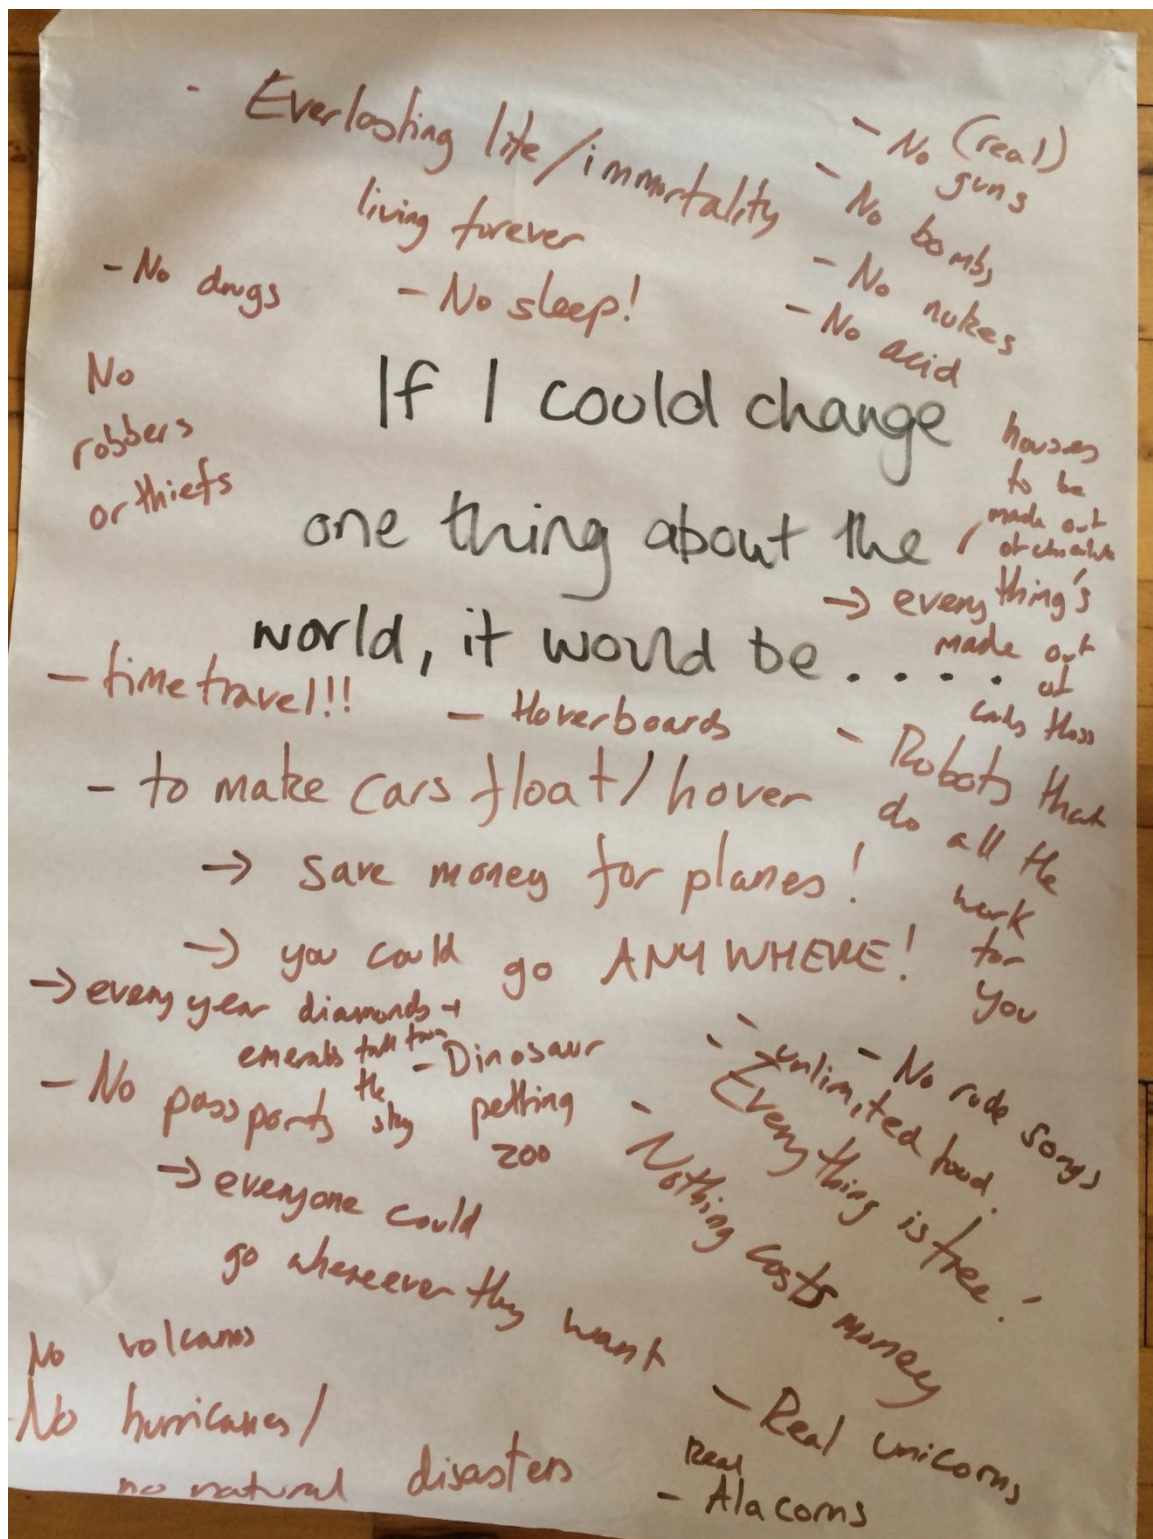 - Everlasting life/immortality
living forever
- No (real)
guns
- No bombs
- No nukes
- No acid
- No drugs
- No sleep!
No
robbers
or thiefs
If I could change
one thing about the
world, it would be.....
houses
to be
made out
of chocolate
→ every thing's
made out
of
candy floss
- time travel!!!
- Hoverboards
- to make cars float/hover
→ save money for planes!
→ you could go ANYWHERE!
- Robots that
do all the
work
for
you
→ every year diamonds +
emeralds fall from
the
sky
- Dinosaur
petting
zoo
- No passports
→ everyone could
go whereever they want
- No rude songs
- unlimited food!
- Everything is free!
- Nothing costs money
No volcanos
- No hurricanes/
no natural disasters
- Real unicorns
Real
- Alacorns